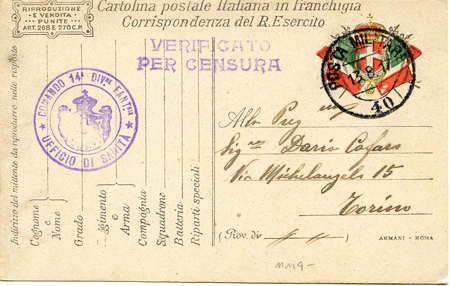 RIPRODUZIONE
E VENDITA
PUNITE
ART. 268 E 270 C.P.
Cartolina postale Italiana in Franchigia
Corrispondenza del R. Esercito
VERIFICATO
PER CENSURA
POSTA MILITARE
13.8.17
40
COMANDO 14ª DIVne FANTria
UFFICIO DI SANITÀ
Indirizzo del mittente da riprodurre nelle risposte
Cognome e Nome
Grado
Reggimento e Arma
Compagnia
Squadrone
Batteria
Riparti speciali
Allo Preg
Sig Dario Cafaro
Via Michelangelo 15
Torino
(Prov. di
ARMANI - ROMA